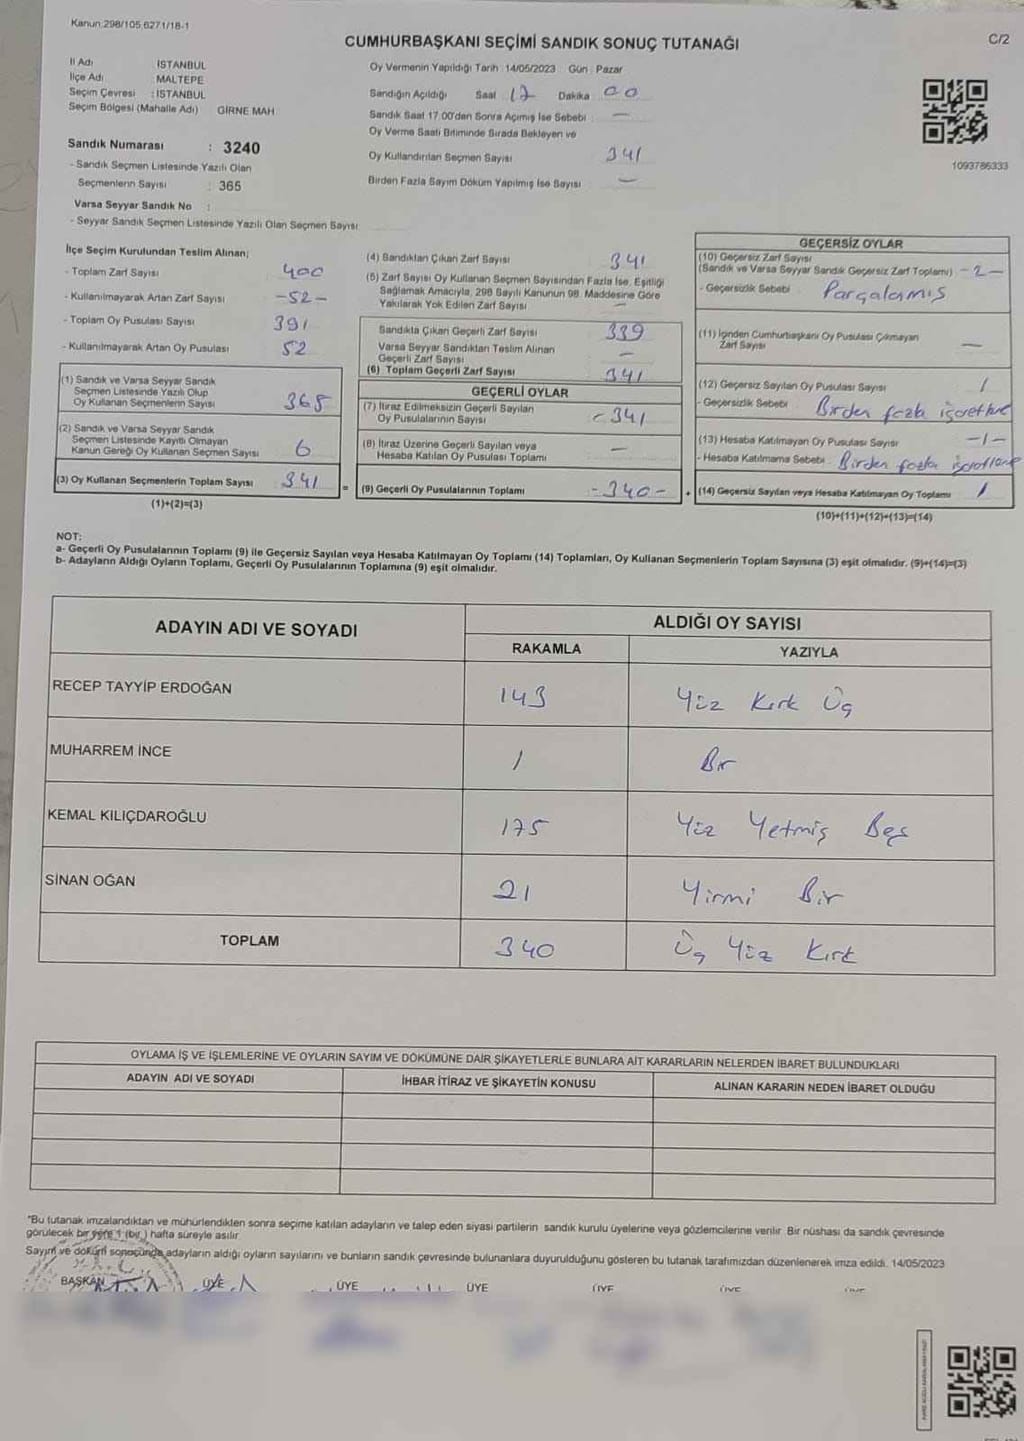 Kanun.298/105,6271/18-1
CUMHURBAŞKANI SEÇİMİ SANDIK SONUÇ TUTANAĞI
C/2
İl Adı İSTANBUL
İlçe Adı MALTEPE
Seçim Çevresi : İSTANBUL
Seçim Bölgesi (Mahalle Adı) GİRNE MAH
Sandık Numarası : 3240
- Sandık Seçmen Listesinde Yazılı Olan
Seçmenlerin Sayısı : 365
Varsa Seyyar Sandık No :
- Seyyar Sandık Seçmen Listesinde Yazılı Olan Seçmen Sayısı
Oy Vermenin Yapıldığı Tarih : 14/05/2023 Gün : Pazar
Sandığın Açıldığı Saat 17 Dakika 00
Sandık Saat 17.00'den Sonra Açımış İse Sebebi : —
Oy Verme Saati Bitiminde Sırada Bekleyen ve
Oy Kullandırılan Seçmen Sayısı 341
Birden Fazla Sayım Döküm Yapılmış İse Sayısı —
1093786333
İlçe Seçim Kurulundan Teslim Alınan;
- Toplam Zarf Sayısı 400
- Kullanılmayarak Artan Zarf Sayısı -52-
- Toplam Oy Pusulası Sayısı 391
- Kullanılmayarak Artan Oy Pusulası 52
(1) Sandık ve Varsa Seyyar Sandık
Seçmen Listesinde Yazılı Olup
Oy Kullanan Seçmenlerin Sayısı 365
(2) Sandık ve Varsa Seyyar Sandık
Seçmen Listesinde Kayıtlı Olmayan
Kanun Gereği Oy Kullanan Seçmen Sayısı 6
(3) Oy Kullanan Seçmenlerin Toplam Sayısı 341 =
(1)+(2)=(3)
(4) Sandıktan Çıkan Zarf Sayısı 341
(5) Zarf Sayısı Oy Kullanan Seçmen Sayısından Fazla İse, Eşitliği
Sağlamak Amacıyla, 298 Sayılı Kanunun 98. Maddesine Göre
Yakılarak Yok Edilen Zarf Sayısı —
Sandıkta Çıkan Geçerli Zarf Sayısı 339
Varsa Seyyar Sandıktan Teslim Alınan
Geçerli Zarf Sayısı —
(6) Toplam Geçerli Zarf Sayısı 341
GEÇERLİ OYLAR
(7) İtiraz Edilmeksizin Geçerli Sayılan
Oy Pusulalarının Sayısı 341
(8) İtiraz Üzerine Geçerli Sayılan veya
Hesaba Katılan Oy Pusulası Toplamı —
(9) Geçerli Oy Pusulalarının Toplamı -340- +
GEÇERSİZ OYLAR
(10) Geçersiz Zarf Sayısı
(Sandık ve Varsa Seyyar Sandık Geçersiz Zarf Toplamı) -2-
- Geçersizlik Sebebi Parçalamış
(11) İçinden Cumhurbaşkanı Oy Pusulası Çıkmayan
Zarf Sayısı —
(12) Geçersiz Sayılan Oy Pusulası Sayısı 1
- Geçersizlik Sebebi Birden fazla
(13) Hesaba Katılmayan Oy Pusulası Sayısı -1-
- Hesaba Katılmama Sebebi Birden fazla
(14) Geçersiz Sayılan veya Hesaba Katılmayan Oy Toplamı 1
(10)+(11)+(12)+(13)=(14)
NOT:
a- Geçerli Oy Pusulalarının Toplamı (9) ile Geçersiz Sayılan veya Hesaba Katılmayan Oy Toplamı (14) Toplamları, Oy Kullanan Seçmenlerin Toplam Sayısına (3) eşit olmalıdır. (9)+(14)=(3)
b- Adayların Aldığı Oyların Toplamı, Geçerli Oy Pusulalarının Toplamına (9) eşit olmalıdır.
ADAYIN ADI VE SOYADI ALDIĞI OY SAYISI
RAKAMLA YAZIYLA
RECEP TAYYİP ERDOĞAN 143 Yüz Kırk Üç
MUHARREM İNCE 1 Bir
KEMAL KILIÇDAROĞLU 175 Yüz Yetmiş Beş
SİNAN OĞAN 21 Yirmi Bir
TOPLAM 340 Üç Yüz Kırk
OYLAMA İŞ VE İŞLEMLERİNE VE OYLARIN SAYIM VE DÖKÜMÜNE DAİR ŞİKAYETLERLE BUNLARA AİT KARARLARIN NELERDEN İBARET BULUNDUKLARI
ADAYIN ADI VE SOYADI İHBAR İTİRAZ VE ŞİKAYETİN KONUSU ALINAN KARARIN NEDEN İBARET OLDUĞU
*Bu tutanak imzalandıktan ve mühürlendikten sonra seçime katılan adayların ve talep eden siyasi partilerin sandık kurulu üyelerine veya gözlemcilerine verilir. Bir nüshası da sandık çevresinde
görülecek bir yere 1 (bir ) hafta süreyle asılır.
Sayım ve döküm sonucunda adayların aldığı oyların sayılarını ve bunların sandık çevresinde bulunanlara duyurulduğunu gösteren bu tutanak tarafımızdan düzenlenerek imza edildi. 14/05/2023
BAŞKAN ÜYE ÜYE ÜYE ÜYE ÜYE